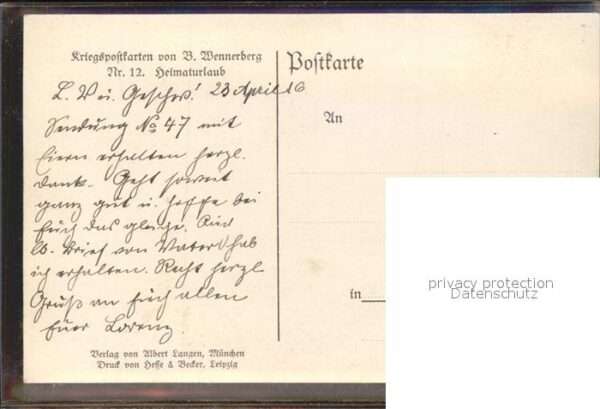 Kriegspostkarten von B. Wennerberg
Nr. 12. Heimaturlaub
Postkarte
L. V u. Geschw! 23 April 16
An
Sendung No 47 mit
Eiern erhalten herzl.
Dank. Geht soweit
ganz gut u. hoffe bei
Euch das gleiche. Auch
lb. Brief von Vater hab
ich erhalten. Recht herzl
Gruß an Euch allen
Euer Lorenz
in
privacy protection
Datenschutz
Verlag von Albert Langen, München
Druck von Hesse & Becker, Leipzig